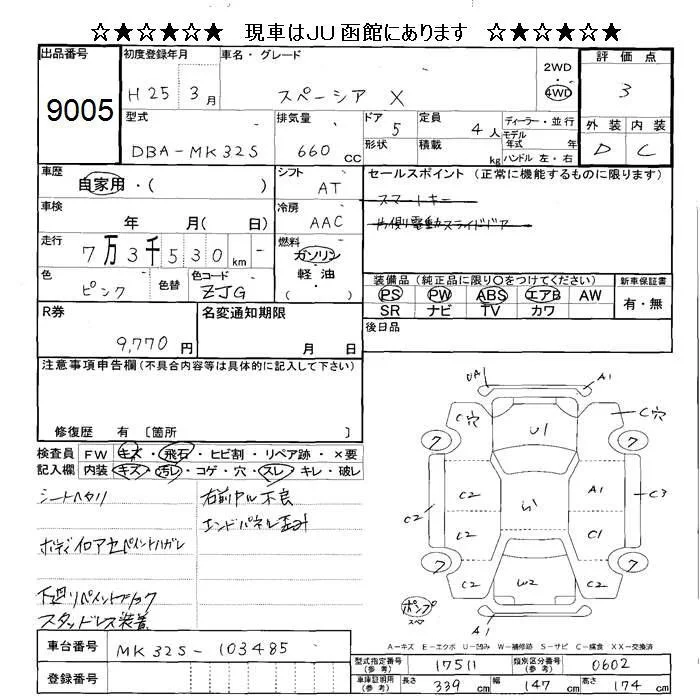 ☆★☆★☆ 現車はJU函館にあります ☆★☆★☆
出品番号 9005
初度登録年月 H25 3月
車名・グレード スペーシア X
2WD 4WD
評価点 3
外装 D 内装 C
型式 DBA-MK32S
排気量 660 CC
ドア 5
形状
定員 4人
積載 kg
ディーラー・並行
モデル年式 年
ハンドル 左・右
車歴 自家用・( )
シフト AT
セールスポイント(正常に機能するものに限ります)
スマートキー
片側電動スライドドア
車検 年 月( 日)
冷房 AAC
走行 7万3千530km
燃料 ガソリン 軽油 ( )
色 ピンク
色替
色コード ZJG
装備品(純正品に限り○をつけてください)
PS PW ABS エアB AW
SR ナビ TV カワ
新車保証書 有・無
後日品
R券 9,770円
名変通知期限 月 日
注意事項申告欄(不具合内容等は具体的に記入して下さい)
修復歴 有 〔箇所
検査員記入欄
FW キズ・飛石・ヒビ割・リペア跡・×要
内装 キズ・汚レ・コゲ・穴・スレ・キレ・破レ
シートヘタリ
右前ヤル不良
エンドパネル歪み
ボディイロアセペイントハガレ
下廻リペイントブラック
スタッドレス装着
UA1
A1
C穴
C穴
7
7
U1
C2
A1
C3
C2
U1
C2
C1
7
7
C2
W2
C2
パンプ
スペア
A1
A-キズ E-エクボ U-凹み W-補修跡 S-サビ C-腐食 XX-交換済
車台番号 MK32S-103485
登録番号
型式指定番号(参考) 17511
類別区分番号(参考) 0602
車庫証明用(参考) 長さ 339cm 幅 147cm 高さ 174cm